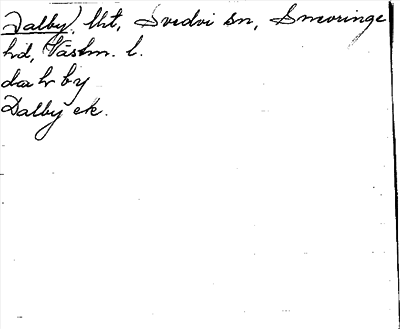 Dalby, lht, Svedvi sn, Snevringe
hd, Västm. l.
dα h by
Dalby ek.